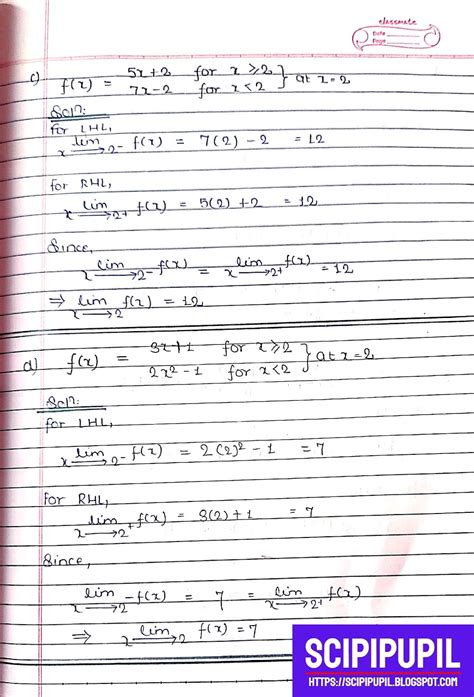 classmate
Date
Page
c) f(x) = 5x+2 for x ⩾ 2 } at x=2
7x-2 for x < 2
Solⁿ:
For LHL,
lim x→2- f(x) = 7(2) - 2 = 12
For RHL,
lim x→2+ f(x) = 5(2) +2 = 12
Since,
lim x→2- f(x) = lim x→2+ f(x) = 12
⇒ lim x→2 f(x) = 12
d) f(x) = 3x+1 for x ⩾ 2 } at x=2
2x²-1 for x<2
Solⁿ:
For LHL,
lim x→2- f(x) = 2(2)² - 1 = 7
For RHL,
lim x→2+ f(x) = 3(2) + 1 = 7
Since,
lim x→2- f(x) = 7 = lim x→2+ f(x)
⇒ lim x→2 f(x) = 7
SCIPIPUPIL
HTTPS://SCIPIPUPIL.BLOGSPOT.COM